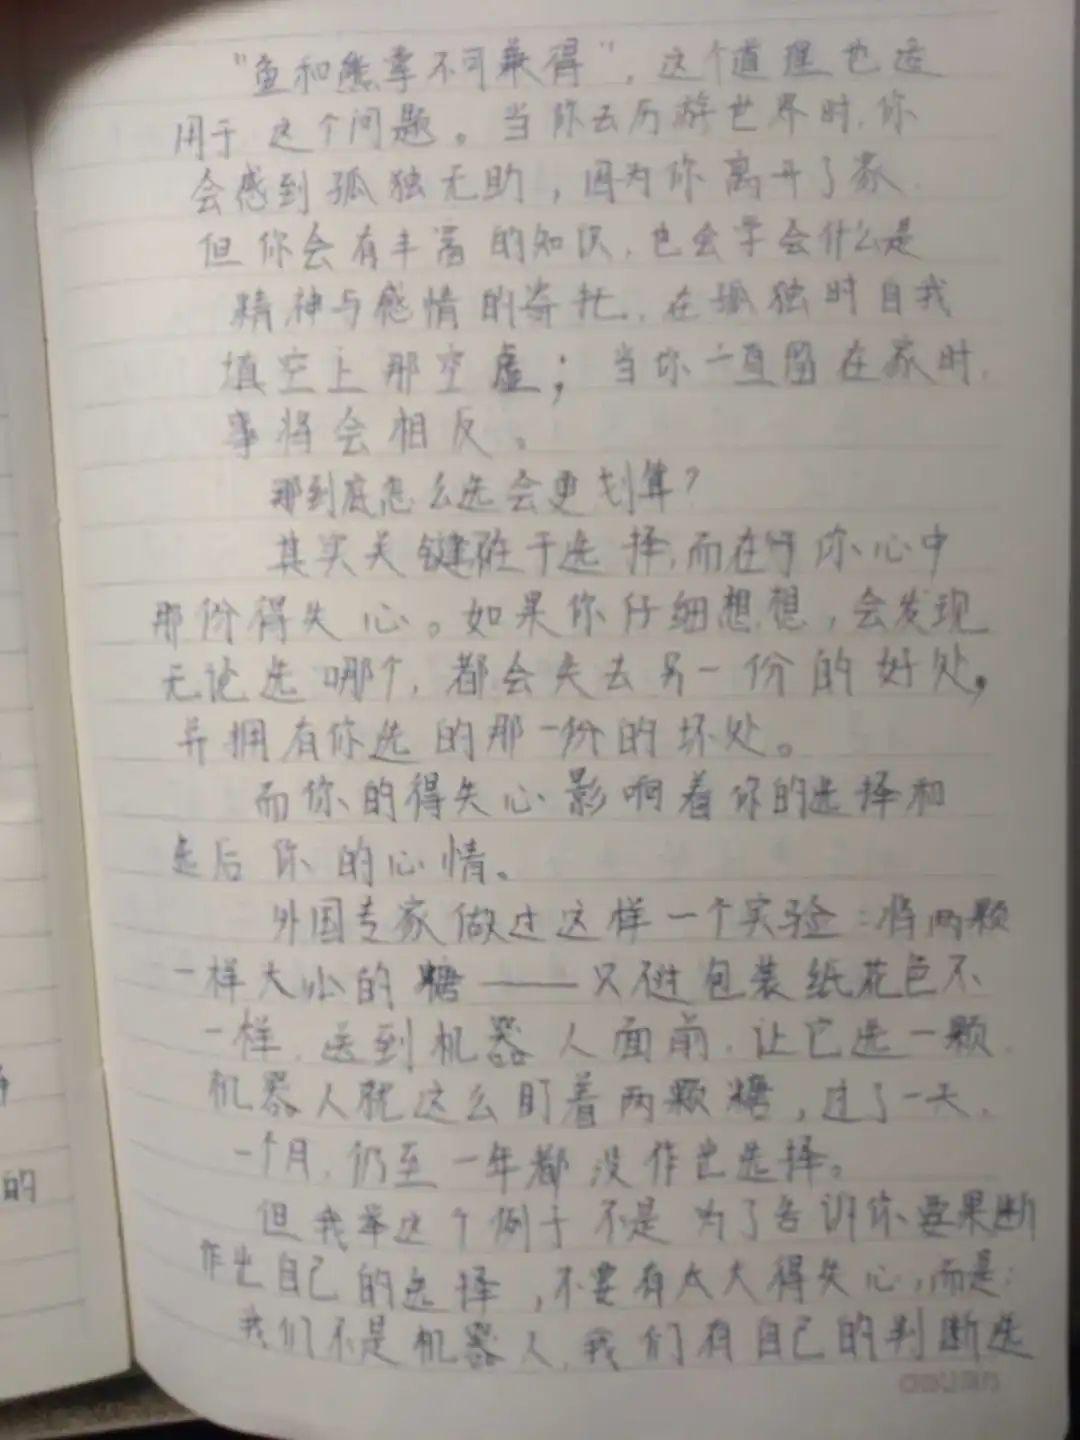 “鱼和熊掌不可兼得”，这个道理也适
用于这个问题。当你去历游世界时，你
会感到孤独无助，因为你离开了家，
但你会有丰富的知识，也会学会什么是
精神与感情的寄托，在孤独时自我
填空上那空虚；当你一直留在家时，
事将会相反。
那到底怎么选会更划算？
其实关键不在于选择，而在于你心中
那份得失心。如果你仔细想想，会发现
无论选哪个，都会失去另一份的好处，
并拥有你选的那一份的坏处。
而你的得失心影响着你的选择和
选后你的心情。
外国专家做过这样一个实验：将两颗
一样大小的糖——只不过包装纸花色不
一样，送到机器人面前，让它选一颗，
机器人就这么盯着两颗糖，过了一天，
一个月，仍至一年都没作出选择。
但我举这个例子不是为了告训你要果断
作出自己的选择，不要有太大得失心，而是：
我们不是机器人，我们有自己的判断选
的